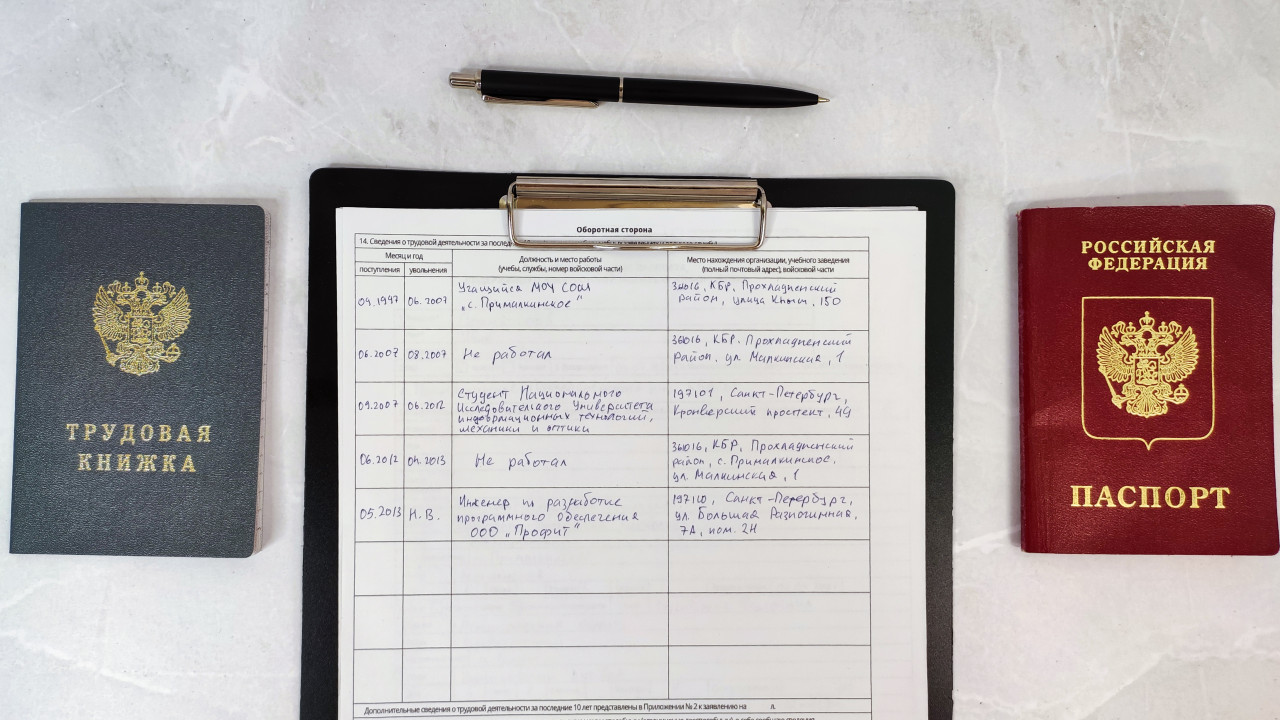 Оборотная сторона
14. Сведения о трудовой деятельности за последние
Месяц и год
поступления
увольнения
Должность и место работы
(учебы, службы, номер войсковой части)
Место нахождения организации, учебного заведения
(полный почтовый адрес), войсковой части
09.1997
06.2007
Учащийся МОУ СОШ
„с. Прималкинское"
361016, КБР, Прохладненский
район, улица Кызыл, 150
06.2007
08.2007
Не работал
361016, КБР. Прохладненский
район, ул. Малкинская, 1
09.2007
06.2012
Студент Национального
Исследовательского Университета
информационных технологий,
механики и оптики
197101, Санкт-Петербург,
Кронверкский проспект, 49
06.2012
04.2013
Не работал
361016, КБР, Прохладненский
район, с. Прималкинское,
ул. Малкинская, 1
05.2013
Н.В.
Инженер по разработке
программного обеспечения
ООО „Профит"
197110, Санкт-Петербург,
ул. Большая Разночинная,
7А, пом. 2Н
Дополнительные сведения о трудовой деятельности за последние 10 лет представлены в Приложении № 2 к заявлению на л.
ТРУДОВАЯ
КНИЖКА
РОССИЙСКАЯ
ФЕДЕРАЦИЯ
ПАСПОРТ